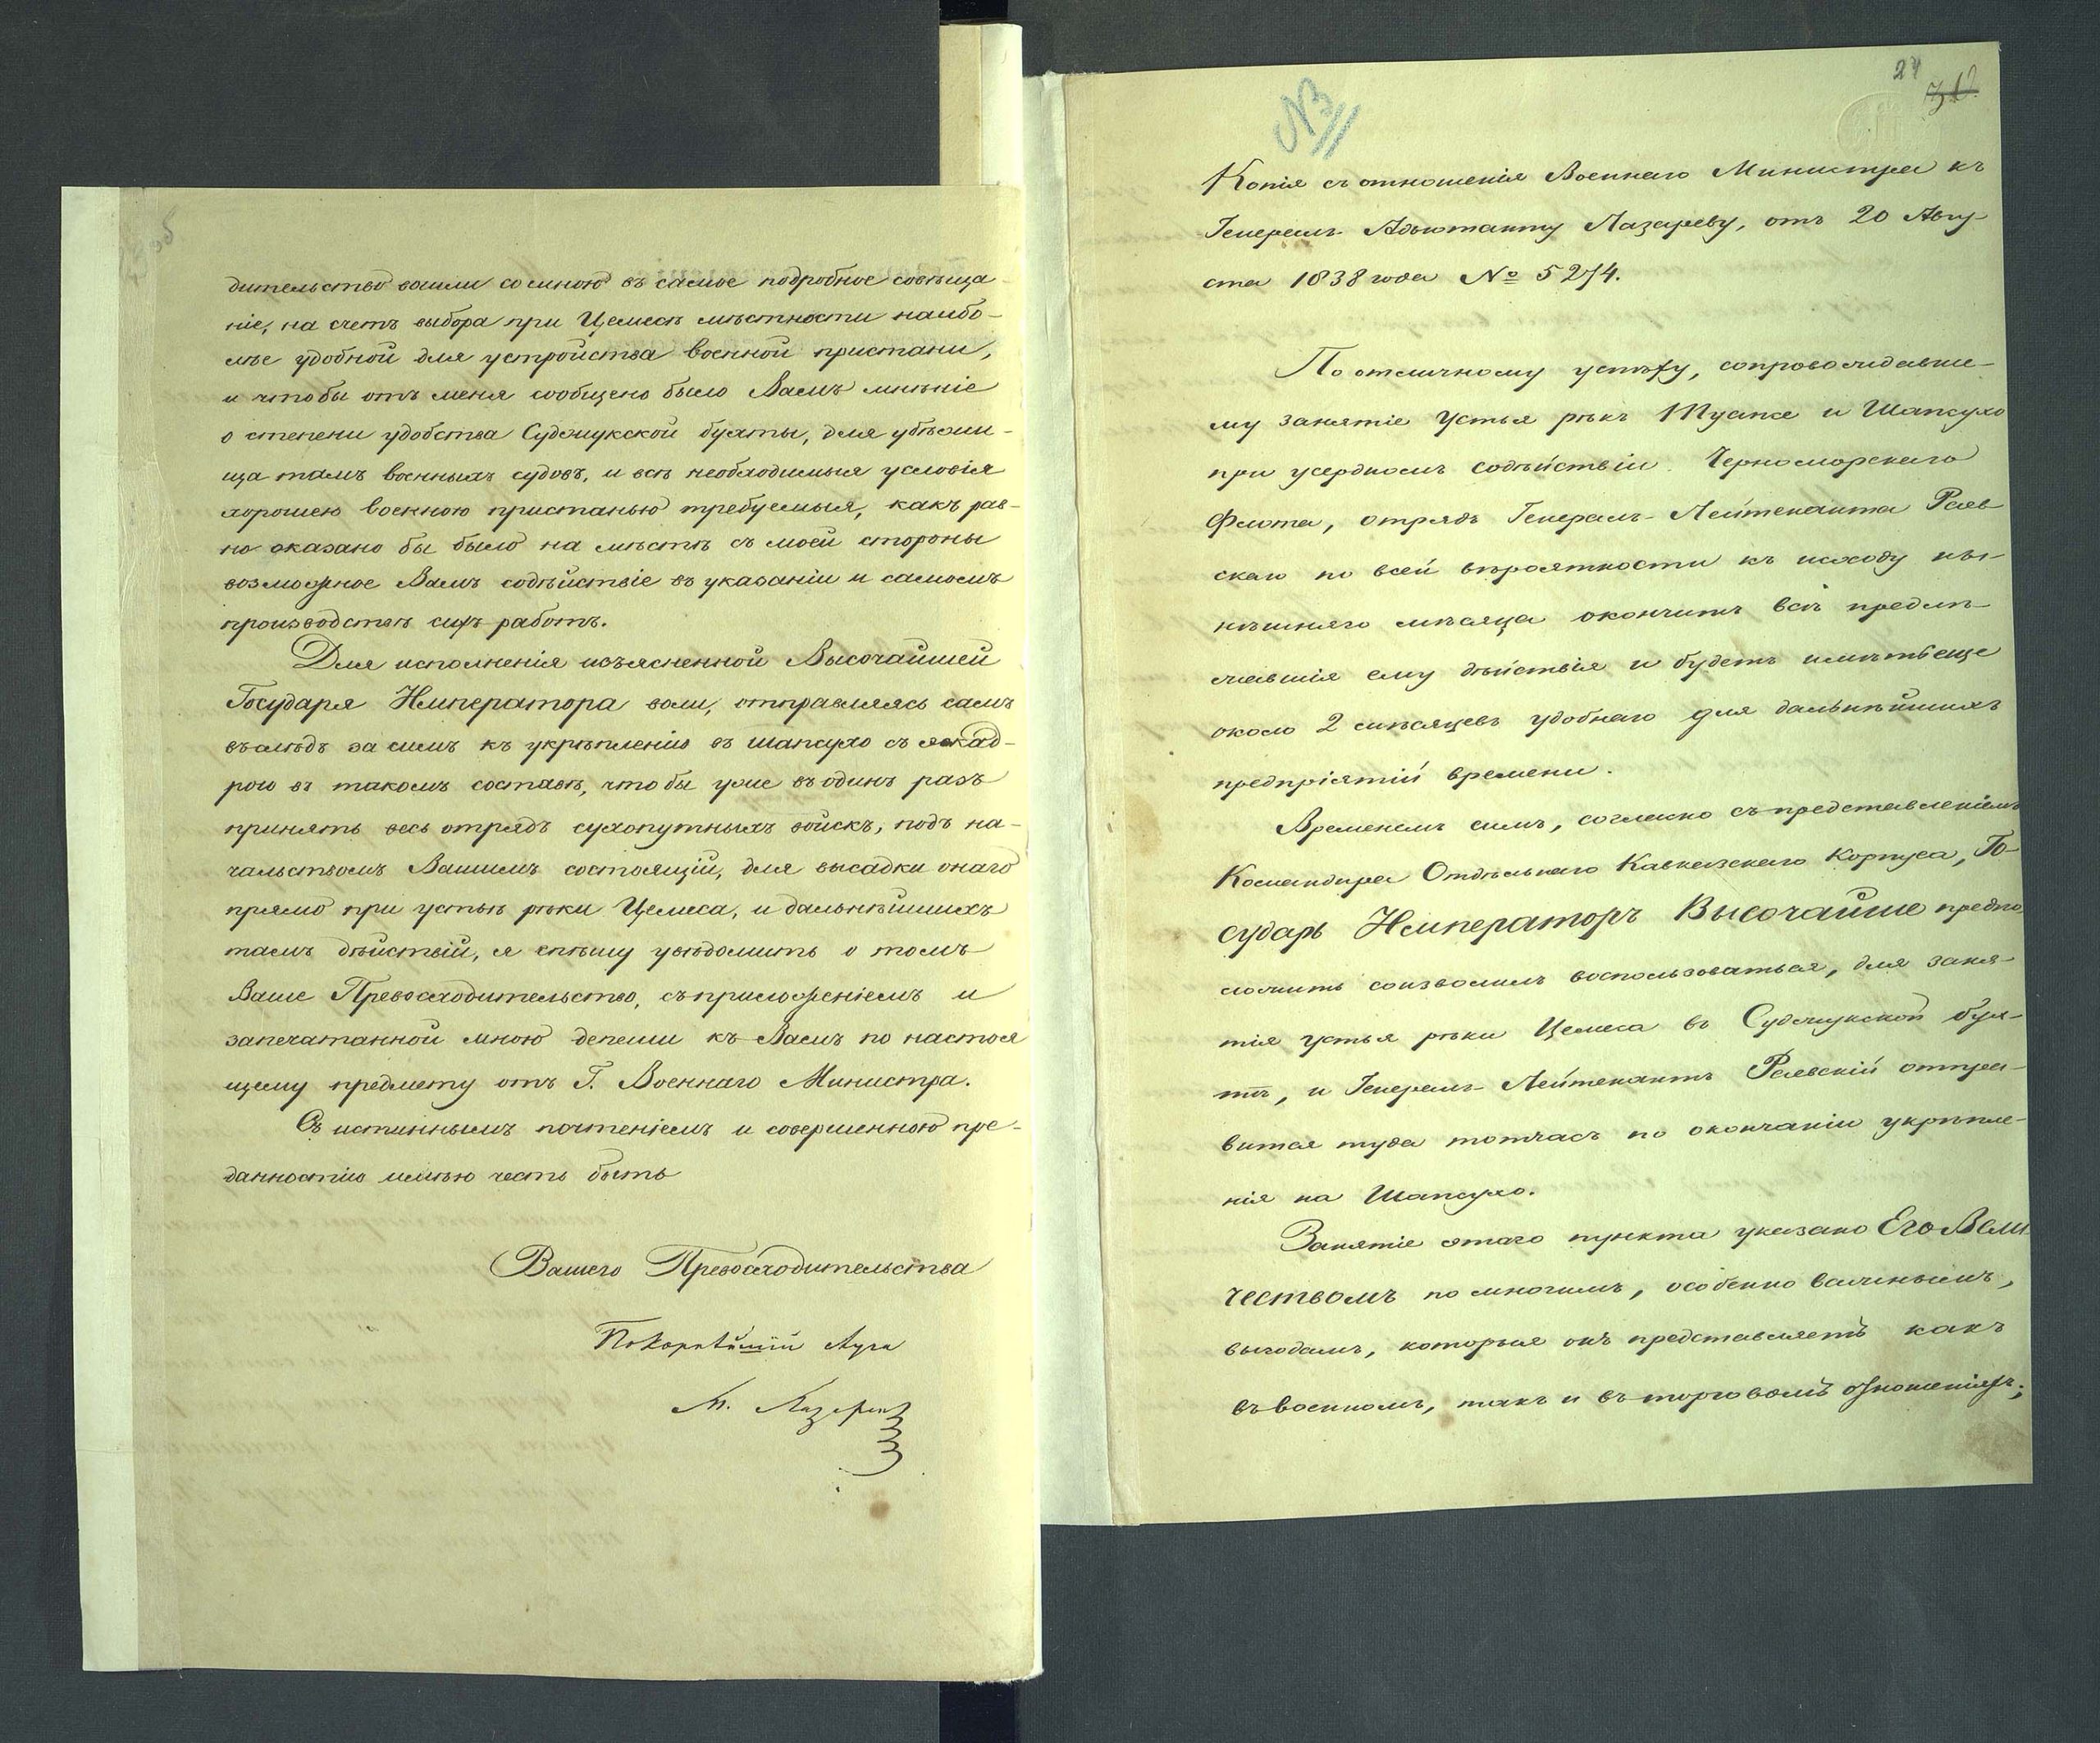 дительство вошли со мною въ самое подробное совѣща-
ніе, на счетъ выбора при Цемесѣ мѣстности наибо-
лѣе удобной для устройства военной пристани,
и чтобы отъ меня сообщено было Вамъ мнѣніе
о степени удобства Суджукской бухты, для убѣжи-
ща тамъ военныхъ судовъ, и всѣ необходимыя условія
хорошею военною пристанью требуемыя, какъ рав-
но оказано бы было на мѣстѣ съ моей стороны
возможное Вамъ содѣйствіе въ указаніи и самомъ
производствѣ сихъ работъ.
Для исполненія изъясненной Высочайшей
Государя Императора воли, отправляясь самъ
въ слѣдъ за симъ къ укрѣпленію въ Шапсухо съ эскад-
рою въ такомъ составѣ, чтобы уже въ одинъ разъ
принять весь отрядъ сухопутныхъ войскъ, подъ на-
чальствомъ Вашимъ состоящій, для высадки онаго
прямо при устьѣ рѣки Цемеса, и дальнѣйшихъ
тамъ дѣйствій, я спѣшу увѣдомить о томъ
Ваше Превосходительство, съ приложеніемъ и
запечатанной мною депеши къ Вамъ по настоя
щему предмету отъ Г. Военнаго Министра.
Съ истиннымъ почтеніемъ и совершенною пре-
данностію имѣю честь быть
Вашего Превосходительства
Покорнѣйшій слуга
М. Лазаревъ
27
№3
Копія съ отношенія Военнаго Министра къ
Генералъ-Адъютанту Лазареву, отъ 20 Авгу-
ста 1838 года № 5274.
По отличному успѣху, сопровождавше-
му занятіе Устья рѣкъ Туапсе и Шапсухо
при усердномъ содѣйствіи Черноморскаго
Флота, отрядъ Генералъ-Лейтенанта Раев-
скаго по всей вѣроятности къ исходу ны-
нѣшняго мѣсяца окончитъ всѣ предле-
жавшія ему дѣйствія и будетъ имѣть еще
около 2 мѣсяцевъ удобнаго для дальнѣйшихъ
предпріятій времени.
Временемъ симъ, согласно съ представленіемъ
Командира Отдѣльнаго Кавказскаго Корпуса, Го-
сударь Императоръ Высочайше предпо-
ложить соизволилъ воспользоваться, для заня-
тія устья рѣки Цемеса въ Суджукской бух-
тѣ, и Генералъ-Лейтенантъ Раевскій отпра-
вится туда тотчасъ по окончаніи укрѣпле-
нія на Шапсухо.
Занятіе этаго пункта указано Его Вели-
чествомъ по многимъ, особенно важнымъ,
выгодамъ, которыя онъ представляетъ какъ
въ военномъ, такъ и въ торговомъ отношеніяхъ;